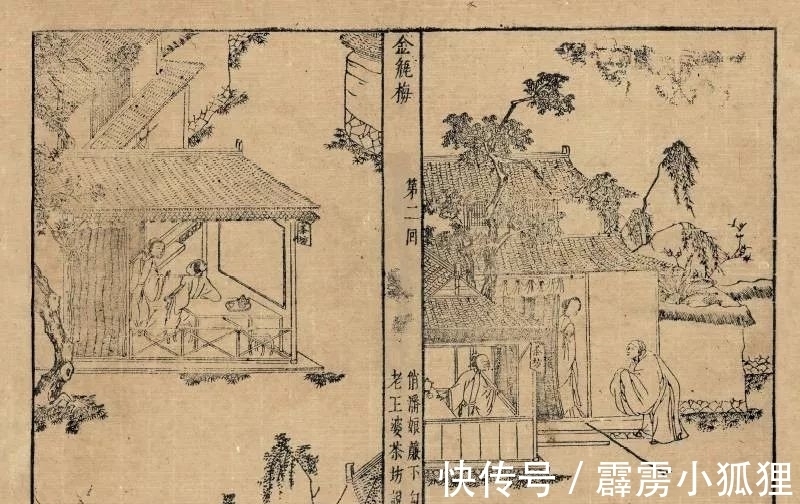 金瓶梅
第二回
俏潘娘簾下勾
老王婆茶坊說
快传号 / 霹雳小狐狸